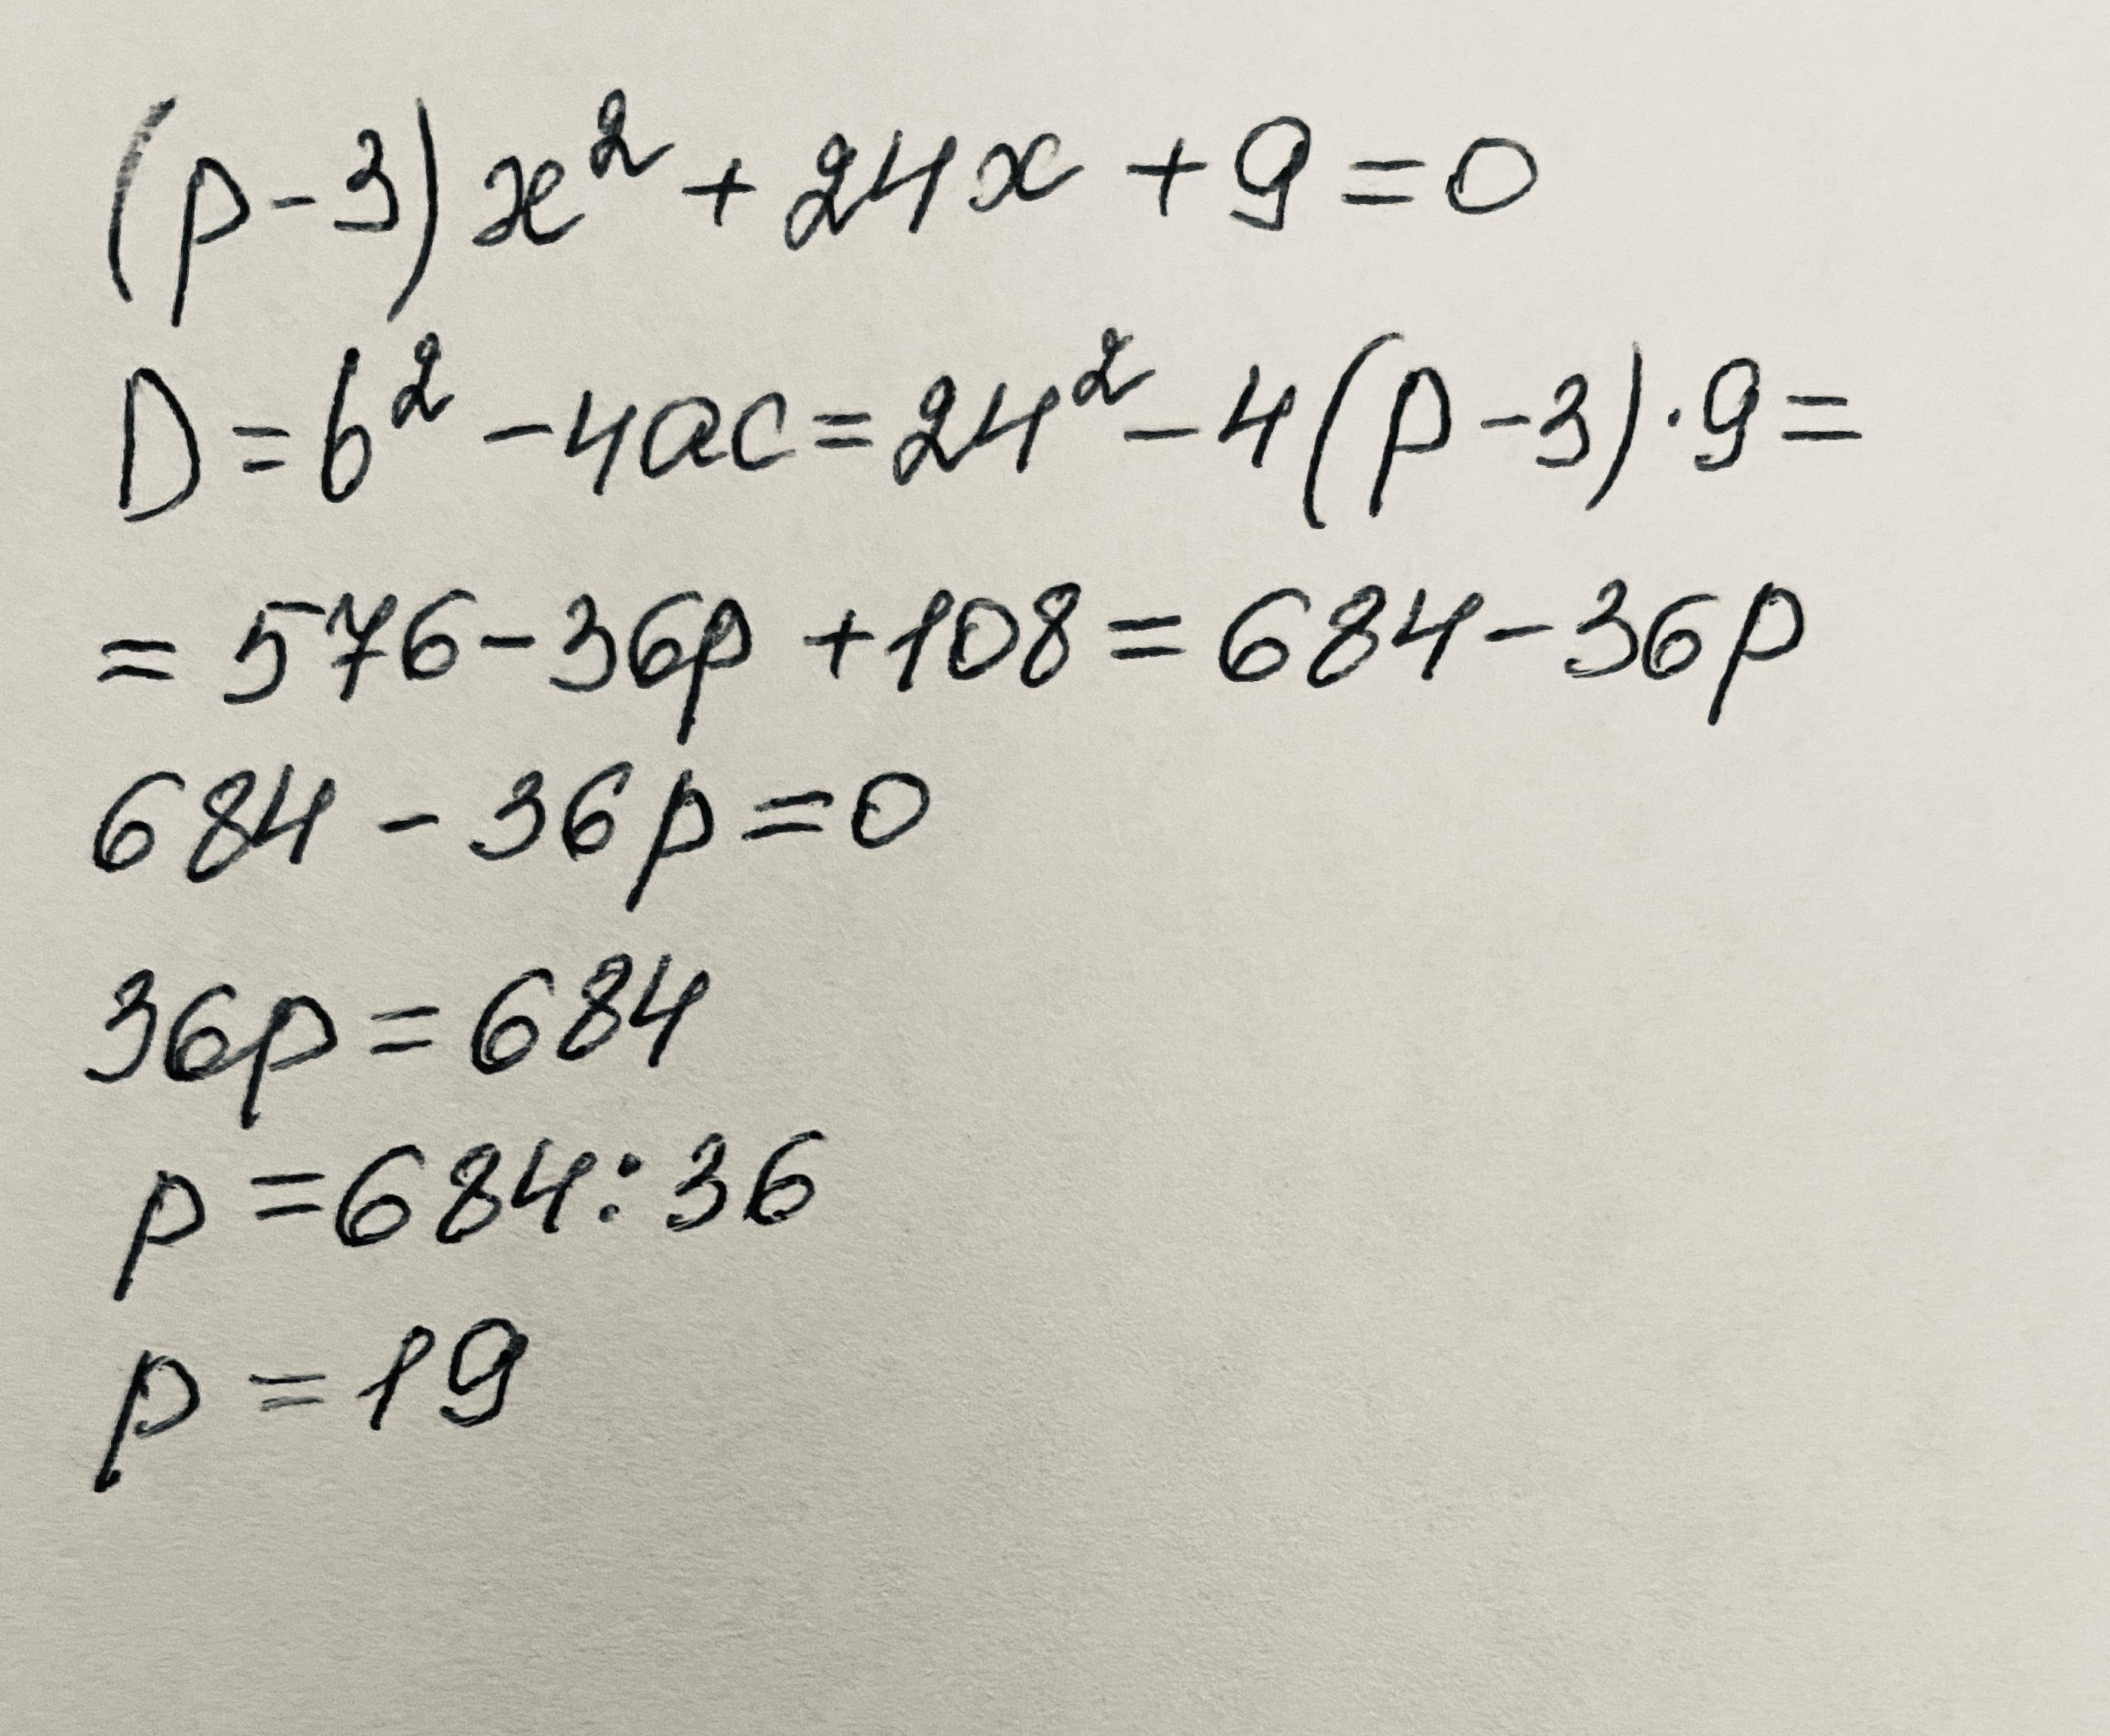 (p-3)x² + 24x + 9 = 0
D = b² - 4ac = 24² - 4(p-3)·9 =
= 576 - 36p + 108 = 684 - 36p
684 - 36p = 0
36p = 684
p = 684 : 36
p = 19